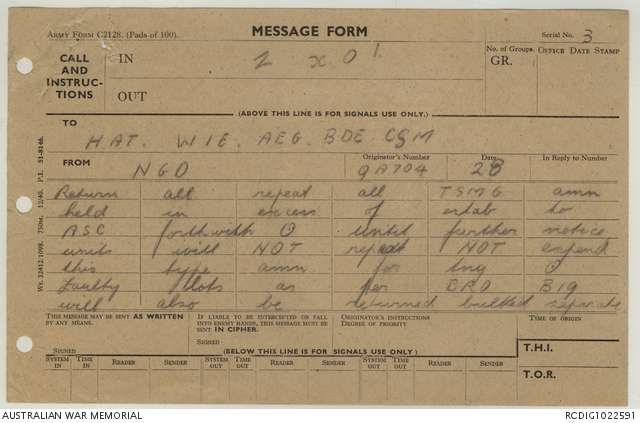 ARMY FORM C2128. (Pads of 100).
MESSAGE FORM
Serial No. 3
CALL AND INSTRUCTIONS
IN
2 x 0 1.
No. of Groups.
GR.
OFFICE DATE STAMP
OUT
(ABOVE THIS LINE IS FOR SIGNALS USE ONLY.)
TO
HAT. WIE. AEG. BDE CSM
FROM
NGO
Originator's Number
QA704
Date
28
In Reply to Number
Return all repeat all TSMG amn
held in excess of estab to
ASC forthwith O until further notice
units will NOT repeat NOT expend
this type amn for tng O
Faulty lots as per DRO 819
will also be returned bulked separate
THIS MESSAGE MAY BE SENT AS WRITTEN BY ANY MEANS.
IF LIABLE TO BE INTERCEPTED OR FALL INTO ENEMY HANDS, THIS MESSAGE MUST BE SENT IN CIPHER.
ORIGINATOR'S INSTRUCTIONS DEGREE OF PRIORITY
TIME OF ORIGIN
SIGNED
SIGNED
(BELOW THIS LINE IS FOR SIGNALS USE ONLY)
T.H.I.
SYSTEM IN TIME IN READER SENDER SYSTEM OUT TIME OUT READER SENDER SYSTEM OUT TIME OUT READER SENDER
T.O.R.
AUSTRALIAN WAR MEMORIAL
RCDIG1022591